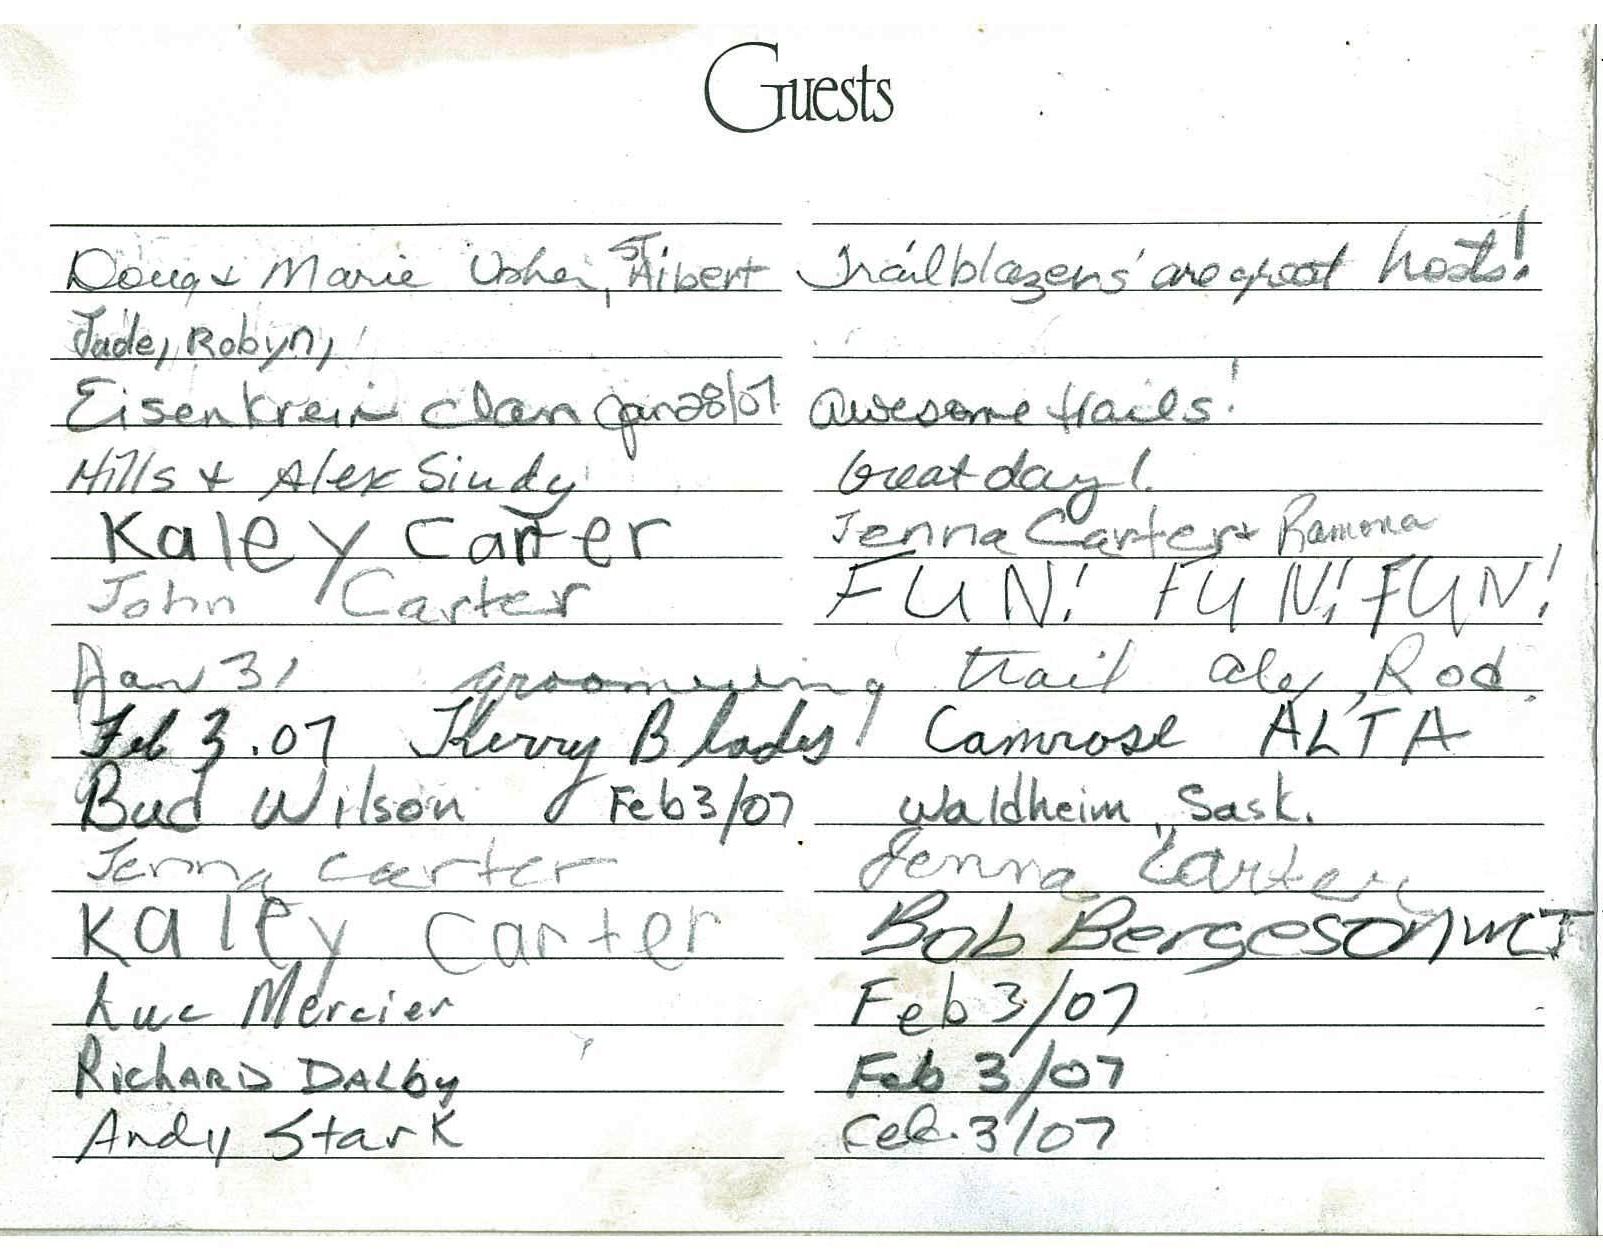 Guests
Doug & Marie Usher, St Albert Trailblazers' are great hosts!
Jade, Robyn,
Eisenkrein clan Jan 28/07 awesome trails!
Hills & Alex Sindy Great day!
Kaley Carter Jenna Carter & Ramona
John Carter FUN! FUN! FUN!
Jan 31 groomeing trail Aly, Rod.
Feb 3.07 Kerry Blades! Camrose ALTA
Bud Wilson Feb 3/07 Waldheim, Sask.
Jenna Carter Jenna Carter
Kaley Carter Bob Bergeson WCT
Luc Mercier Feb 3/07
RICHARD DALby Feb 3/07
Andy Stark Feb. 3/07